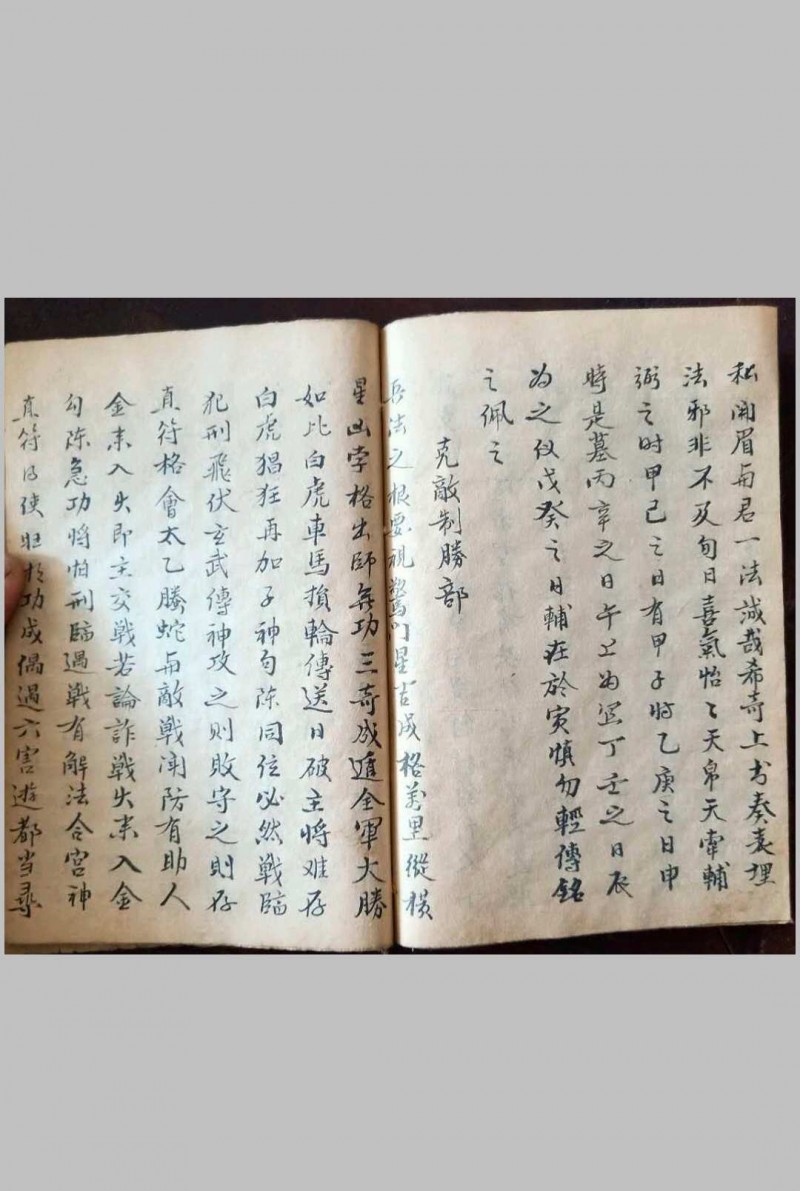 私開眉與君一法誠哉希奇上书奏表埋
法邪非不及旬日喜氣怡〻天帛天牽輔
弼之时甲己之日有甲子时乙庚之日申
時是墓丙辛之日午上为罡丁壬之日辰
为之仪戊癸之日輔在於寅慎勿輕傳銘
之佩之
克敵制勝部
兵法之根要視驚门星吉成格萬里縱橫
星凶孛格出師無功三奇成進全軍大勝
如比白虎車馬損輪傳送日破主将难存
白虎猖狂再加子神勾陈同位必然戰臨
犯刑飛伏玄武傳神攻之則敗守之則存
直符格會太乙騰蛇与敵戰闹防有助人
金来入火即主交戰若論詐戰火来入金
勾陈急功将怕刑臨遇戰有解法合宫神
直符得使旺於功成偶遇六害遊都当尋